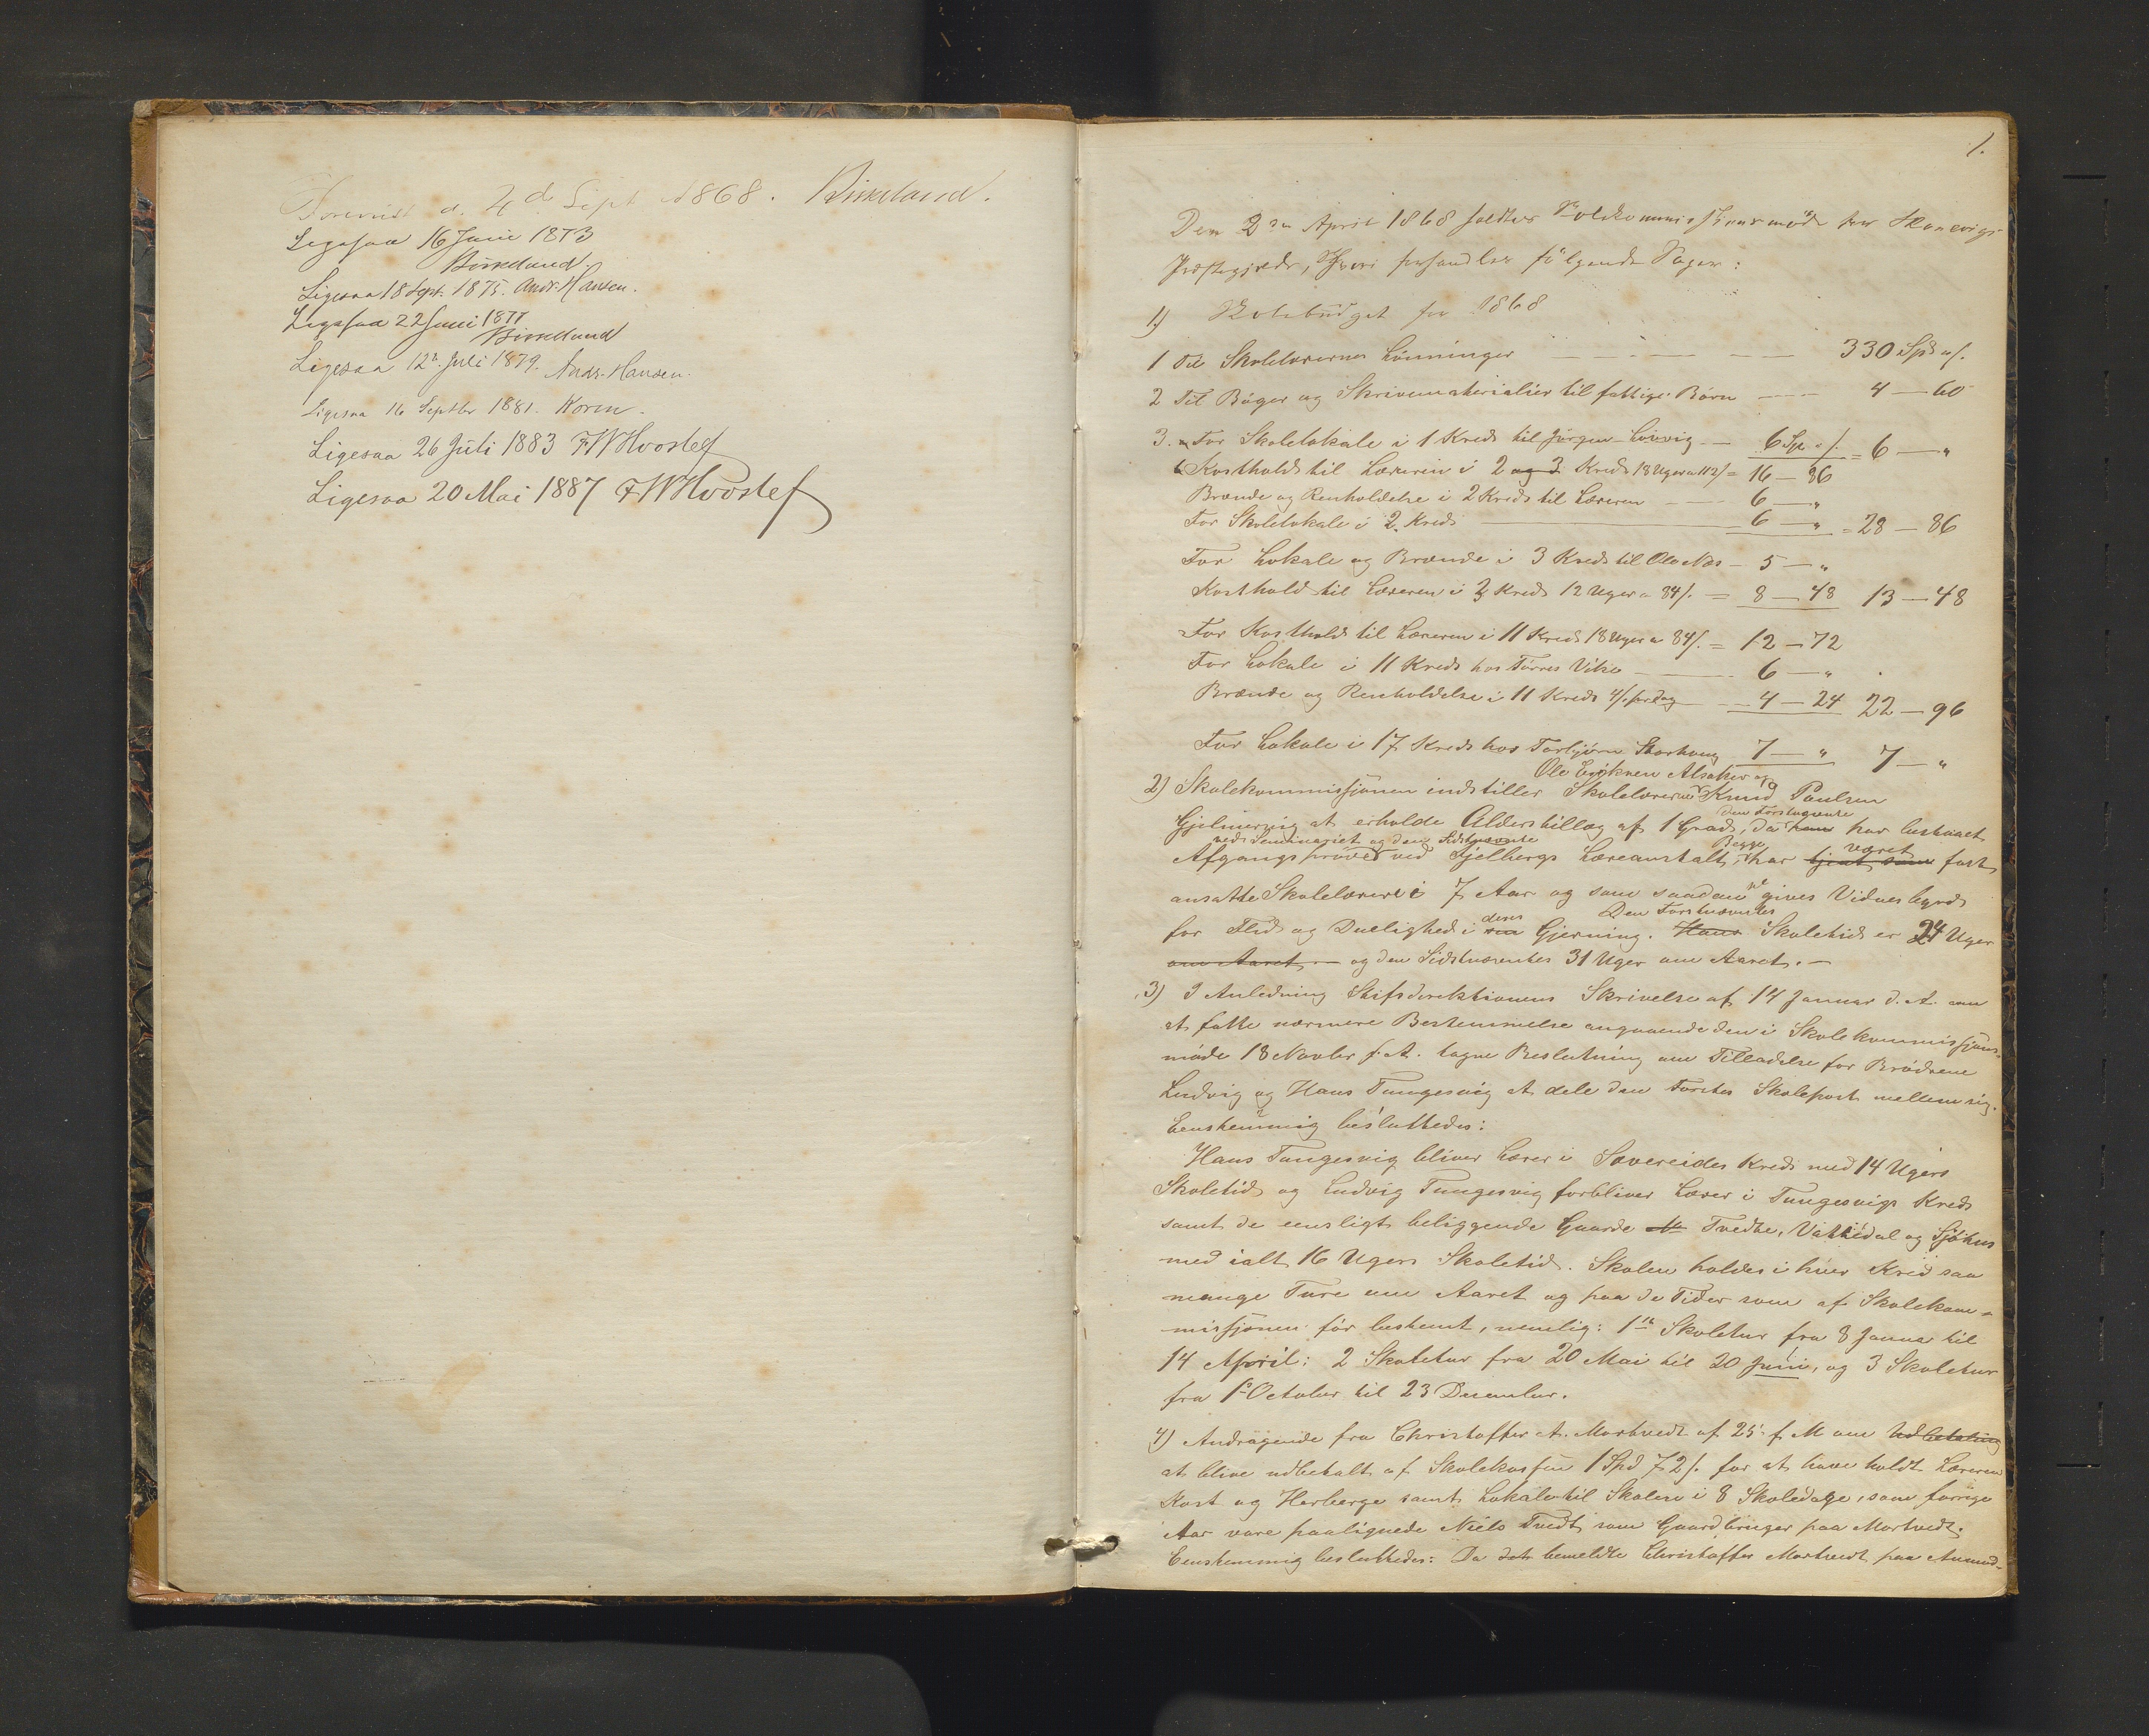 Forevist d. 4de Sept 1868. Birkeland.
Ligesaa 16 Juni 1873
Birkeland.
Ligesaa 18 Sept. 1875. Andr. Hansen.
Ligesaa 22 Juni 1877
Birkeland
Ligesaa 12te Juli 1879. Andr. Hansen.
Ligesaa 16 Septbr 1881. Koren.
Ligesaa 26 Juli 1883 FWHvoslef
Ligesaa 20 Mai 1887 FWHvoslef
1.
Den 2den April 1868 holdtes Skolekommissionsmøde for Skonevigs
Præstegjeld, hvori forhandles følgende Sager:
1) Skolebudget for 1868
1 Til Skolelærernes Lønninger — 330 Spd "/.
2 Til Bøger og Skrivematerialier til fattige Børn — 4 — 60
3. a For Skolelokale i 1 Kreds til Jørgen Leirvig — 6 Sp. "/. = 6 — "
b Kosthold til Læreren i 2 og 3 Kreds 18 Uger a 112/ = 16 — 86
Brænde og Renholdelse i 2 Kreds til Læreren — 6 — "
For Skolelokale i 2. Kreds — 6 — " = 28 — 86
For Lokale og Brænde i 3 Kreds til Ole Næs — 5 — "
Kosthold til Læreren i 3 Kreds 12 Uger a 84/. = 8 — 48 13 — 48
For Kosthold til Læreren i 11 Kreds 18 Uger a 84/. = 12 — 72
For Lokale i 11 Kreds hos Tørres Vike — 6 — "
Brænde og Renholdelse i 11 Kreds 4/. pr dag — 4 — 24 22 — 96
For Lokale i 17 Kreds hos Torbjørn Skarhaug 7 — " 7 — "
Ole Eriksen Alsaker og
2) Skolekommissjonen indstiller Skolelærerne Knud Paulsen
den Førstnævnte
Gjelmervig at erholde Alderstillæg af 1 Grad, da han har bestaaet
ved Seminariet og den Sidstnævnte Begge været
Afgangsprøver ved Fjelbergs Læreanstalt, har tjent som fast
ansatte Skolelærere i 7 Aar og som saadanne gives Vidnesbyrd
deres Den Førstnævntes
for Flid og Duelighed i sin Gjerning. Hans Skoletid er 24 Uger
om Aaret — og den Sidstnævntes 31 Uger om Aaret. —
3) I Anledning Stifsdirektionens Skrivelse af 14 Januar d. A. om
at fatte nærmere Bestemmelse angaaende den i Skolekommissjons-
møde 18 Novbr f. A. tagne Beslutning om Tilladelse for Brødrene
Ludvig og Hans Tungesvig at dele den Førstes Skolepost mellem sig.
Eenstemmig besluttedes:
Hans Tungesvig bliver Lærer i Sævereides Kreds med 14 Ugers
Skoletid og Ludvig Tungesvig forbliver Lærer i Tungesvigs Kreds
samt de eensligt beliggende Gaarde M Tvedte, Vattedal og Sjøhus
med ialt 16 Ugers Skoletid. Skolen holdes i hver Kreds saa
mange Ture om Aaret og paa de Tider som af Skolekom-
missjonen før bestemt, nemlig: 1ste Skoletur fra 8 Januar til
14 April: 2 Skoletur fra 20 Mai til 20 Juni, og 3 Skoletur
fra 1ste October til 23 December.
4) Andragende fra Christoffer A. Mortvedt af 25 f. M om Udbetaling
at blive udbetalt af Skolekassen 1 Spd 72/. for at have holdt Læreren
Kost og Herberge samt Lokale til Skolen i 8 Skoledage, som forrige
Aar vare paalignede Niels Tvedt som Gaardbruger paa Mortvedt.
Eenstemmig besluttedes: Da det bemeldte Christoffer Mortvedt paa Anmod-